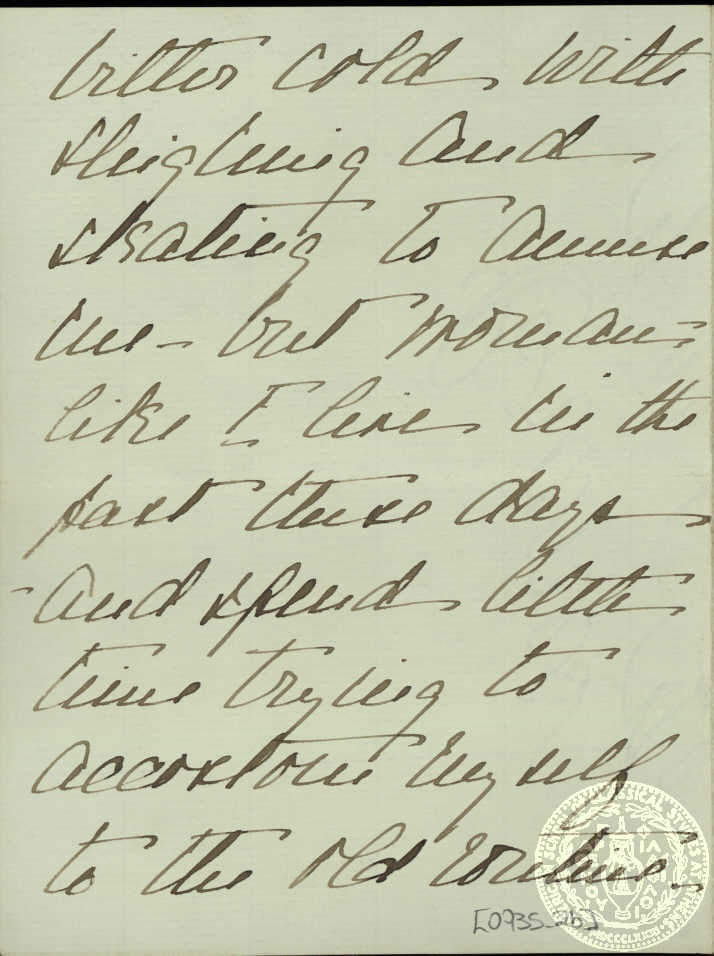 bitter cold, with
sleighing and
skating to amuse
me – but woman=
like I live in the
past these days
and spend little
time trying to
accostom myself
to the old routine –
[0735_2b]